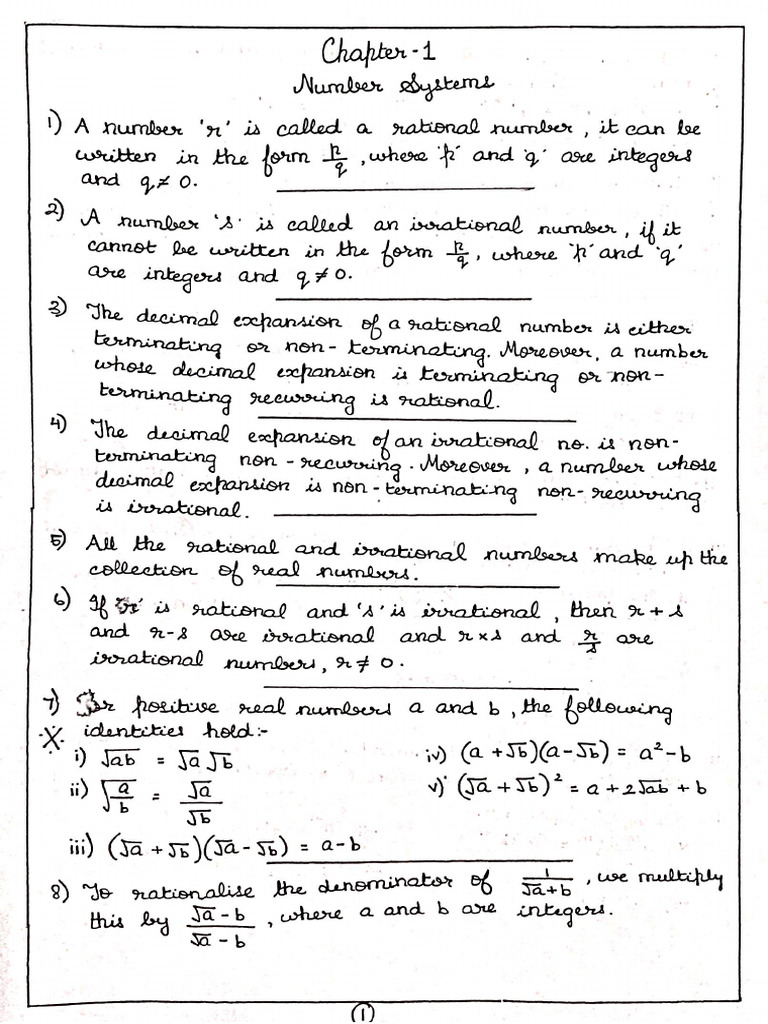 Chapter-1
Number Systems
1) A number 'r' is called a rational number, it can be
written in the form p/q, where 'p' and 'q' are integers
and q ≠ 0.
2) A number 's' is called an irrational number, if it
cannot be written in the form p/q, where 'p' and 'q'
are integers and q ≠ 0.
3) The decimal expansion of a rational number is either
terminating or non-terminating. Moreover, a number
whose decimal expansion is terminating or non-
terminating recurring is rational.
4) The decimal expansion of an irrational no. is non-
terminating non-recurring. Moreover, a number whose
decimal expansion is non-terminating non-recurring
is irrational.
5) All the rational and irrational numbers make up the
collection of real numbers.
6) If 'r' is rational and 's' is irrational, then r + s
and r-s are irrational and r×s and r/s are
irrational numbers, r ≠ 0.
7) For positive real numbers a and b, the following
identities hold:-
i) √ab = √a √b
iv) (a + √b)(a - √b) = a² - b
ii) √(a/b) = √a/√b
v) (√a + √b)² = a + 2√ab + b
iii) (√a + √b)(√a - √b) = a - b
8) To rationalise the denominator of 1/(√a+b), we multiply
this by (√a - b)/(√a - b), where a and b are integers.
1